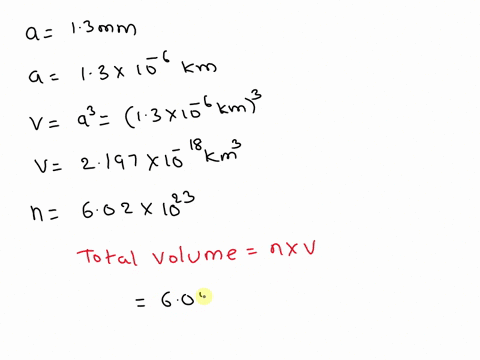 a = 1.3mm
a = 1.3 × 10⁻⁶ km
V = a³ = (1.3×10⁻⁶ km)³
V = 2.197 ×10⁻¹⁸ km³
n = 6.02 × 10²³
Total volume = n×v
= 6.0